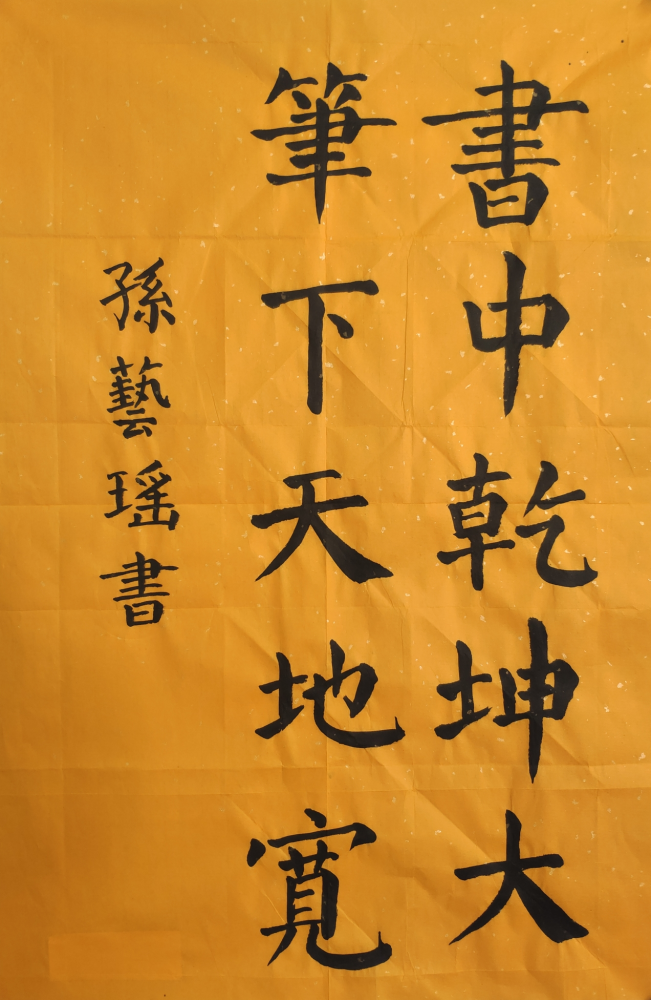 書中乾坤大
筆下天地寬
孫藝瑶書